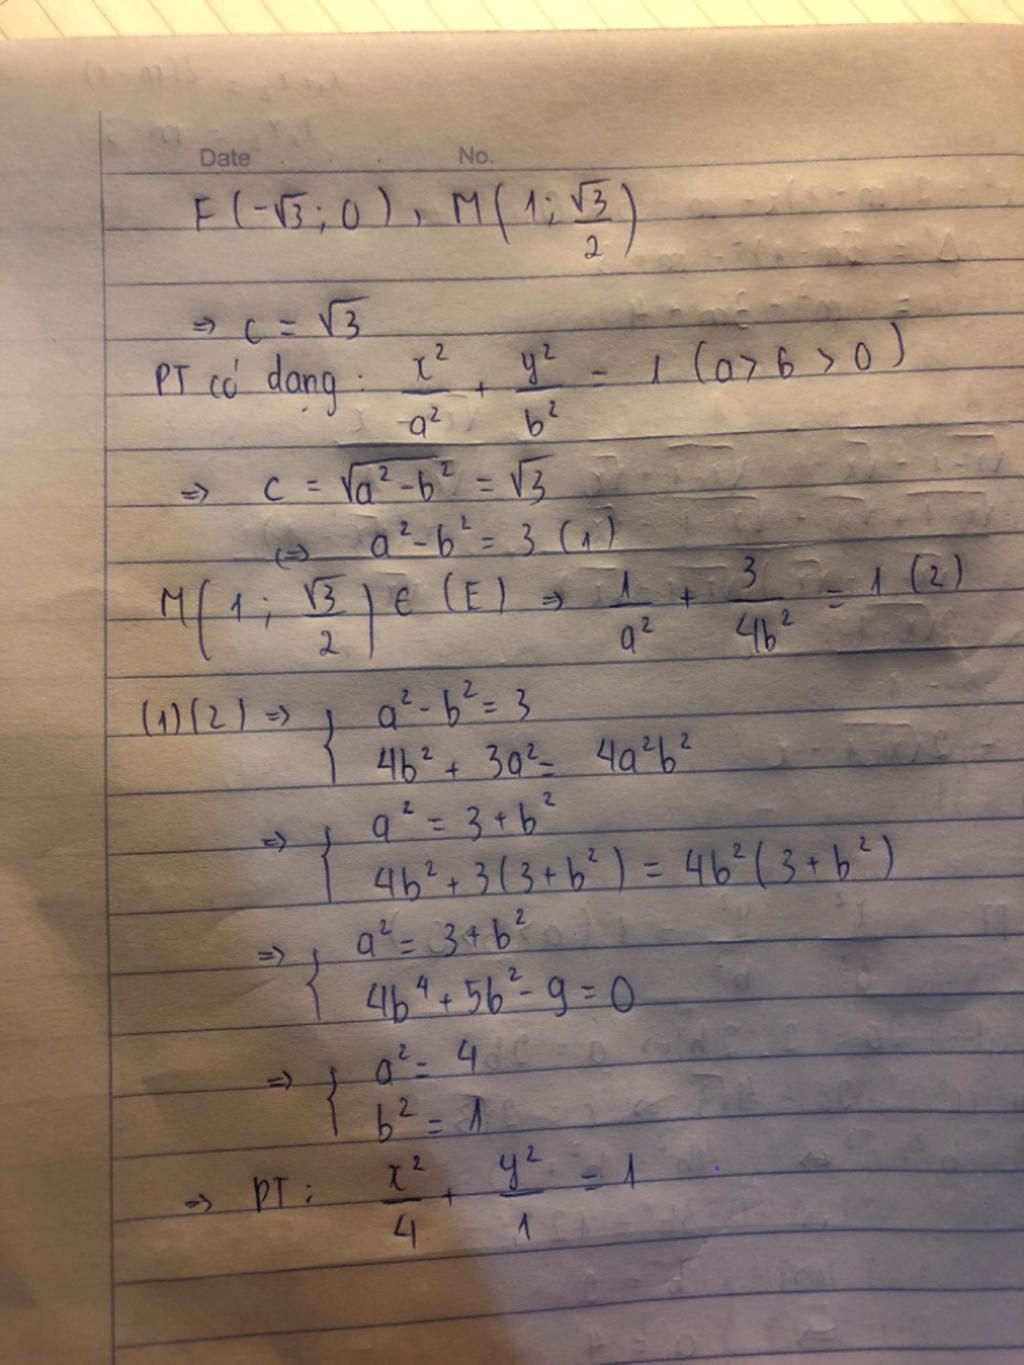 Date No.
F(-√3; 0), M(1; √3/2)
=> c = √3
PT có dạng: x²/a² + y²/b² = 1 (a > b > 0)
=> c = √(a² - b²) = √3
<=> a² - b² = 3 (1)
M(1; √3/2) ∈ (E) => 1/a² + 3/4b² = 1 (2)
(1)(2) => { a² - b² = 3
4b² + 3a² = 4a²b²
=> { a² = 3 + b²
4b² + 3(3 + b²) = 4b²(3 + b²)
=> { a² = 3 + b²
4b⁴ + 5b² - 9 = 0
=> { a² = 4
b² = 1
=> PT: x²/4 + y²/1 = 1